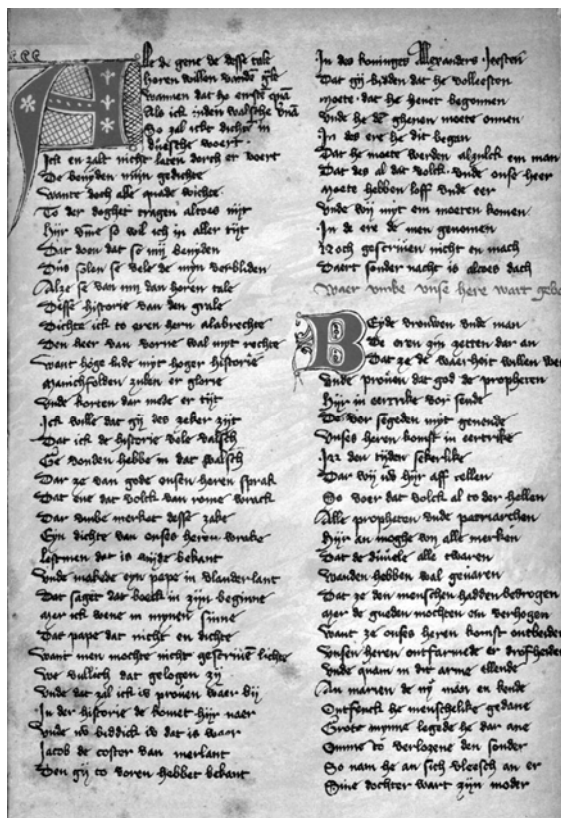 Alle de gene de desse tale
Horen willen vanden grale
Wannen dat he erst quam
Als ick inden walsche vernam
So zal ickt dichten in
duesche woert
Ick en zalt nicht laten dorch er voert
De beniden mijn gedichte
Wante doch alle quade wichte
To der doghet tragen altoes nijt
Hijr vmme so wil ich in aller tijt
Dat doon dat se mij beniden
Dus solen se vele de myn verbliden
Alze se van mij dan horen tale
Desse historie van den grale
Dichte ick to eren hern alabrechte
Den heer van vorne wal myt rechte
Want hoge lude myt hoger historie
Manichfolden zuden er glorie
Vnde korten dar mede er tijt
Ick wille dat gij des zeker zijt
Dat ick de historie vele valsch
Ge vonden hebbe in dat walsch
Dar ze van gode onsen heren sprak
Dat ene dat volck van rome wrack
Dar vmbe merket desse zake
Eyn dichte van onses heren wrake
Lestmen dat is wijde bekant
Vnde makede eyn pape in vlanderlant
Dat saget dat boeck in zijn beginne
Mer ick wene in mynen sinne
Dat pape dat nicht en dichte
Want men mochte nicht gescriuen lichte
We vullich dat gelogen zij
Vnde dat zal ick is prouen waer bij
In der historie de komet hijr naer
Vnde nv biddick iv dat is waer
Jacob de coster van merlant
Den gij to voren hebbet bekant
In des koninges Allexanders Jeesten
Dat gij bidden dat he volleesten
Moete dat he heuet begonnen
Vnde he der ghenen moete onnen
In des ere he dit began
Dat he moete werden alzulck em man
Dat des al dat volck vnde onse heer
Moete hebben loff vnde eer
Vnde wij myt em moeten komen
In de ere de men genomen
Noch gescriuen nicht en mach
Daert sonder nacht is altoes dach
Waer vmbe vnse here wart gebo
Beyde vrouwen vnde man
De oren zin zetten dar an
Dat ze de waerheit willen we
Vnde prouen dat god de propheten
Hijr in eertrike vor sende
De vor segeden myt genende
Vnses heren komst in eertrike
In den tijden sekerlike
Dar wij iv hijr aff tellen
So voer dat volck al to der hellen
Alle propheten vnde patriarchen
Hijr an moghe wij alle merken
Dat de duuele alle twaren
Wanden hebben wal geuaren
Dat ze den menschen hadden bedrogen
Mer de gueden mochten em verhogen
Want ze onses heren komst ontbeiden
Vnsen heren ontfarmede er drofheiden
Vnde quam in dit arme ellende
An marien de nij man en kende
Ontfenck he menschelike gedane
Grote mynne legede he dar ane
Omme to verlozene den sonder
So nam he an sich vleesch an er
Sine dochter wart zijn moder